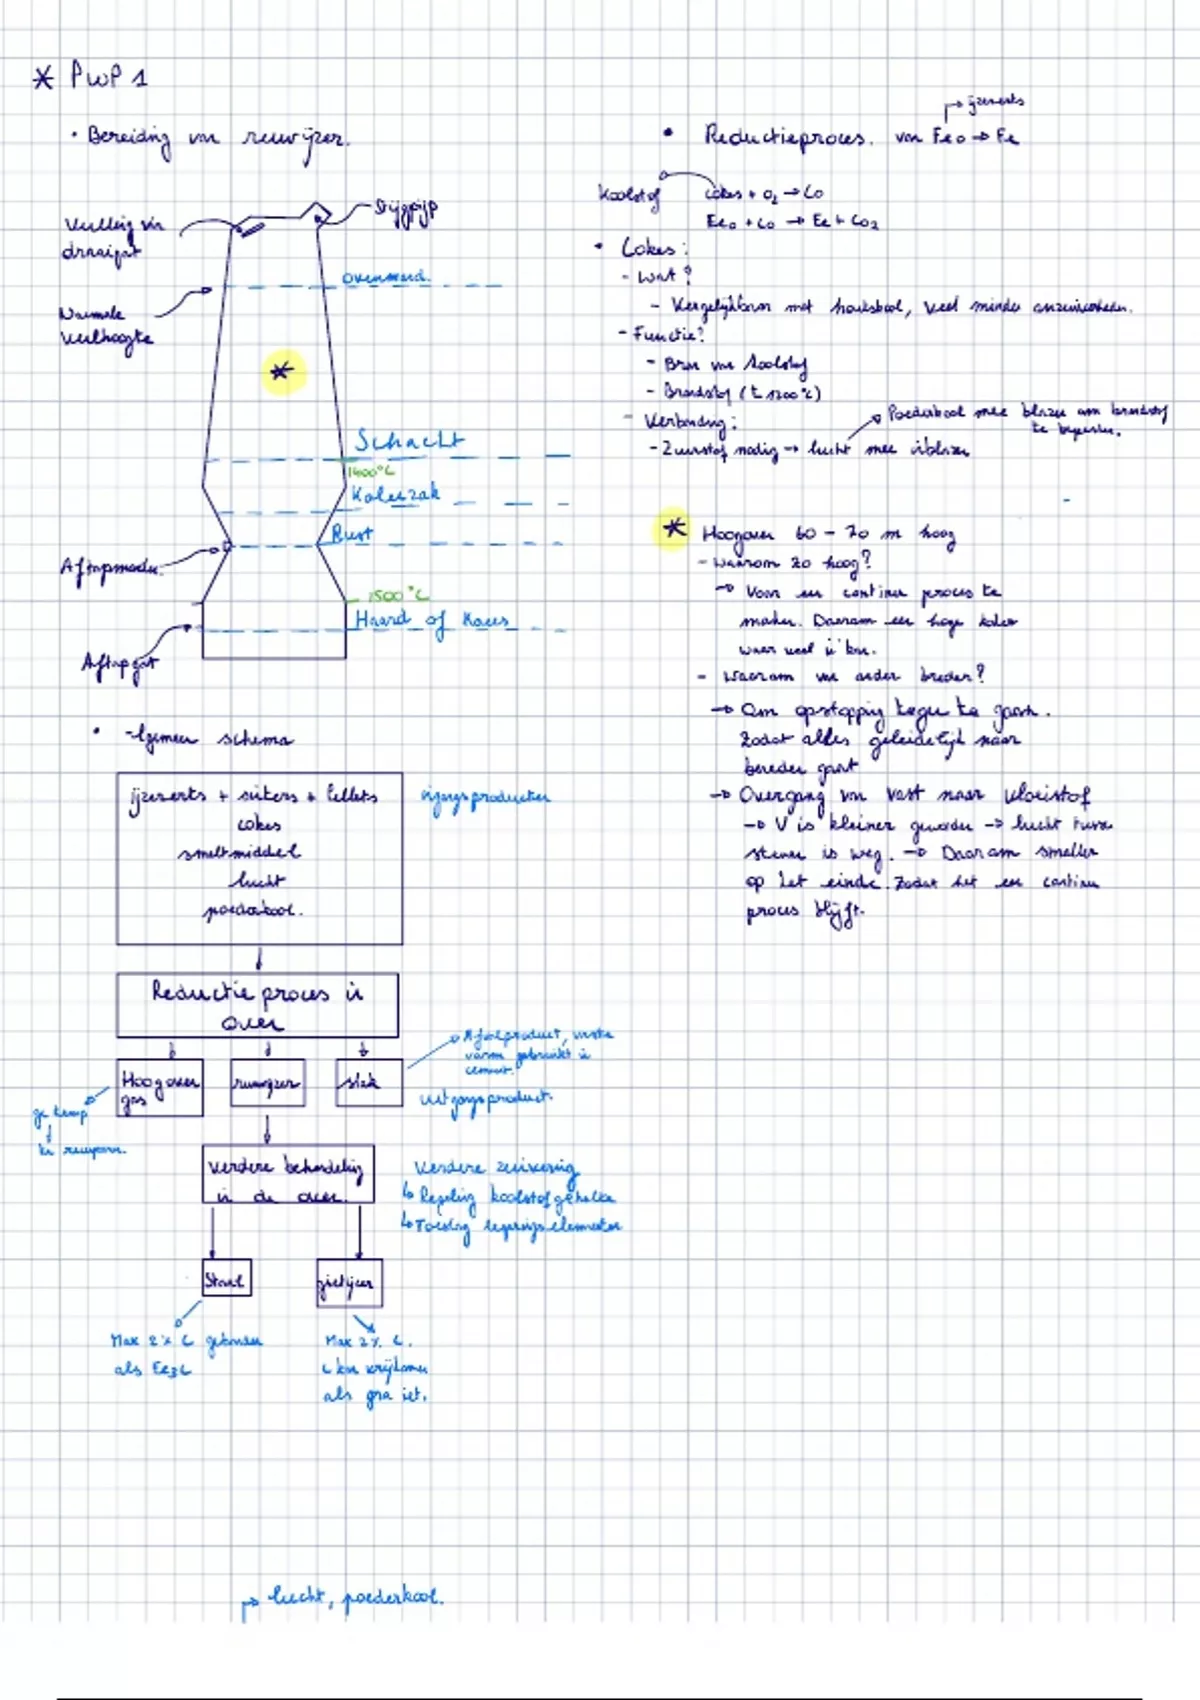 * PWP 1
• Bereiding van ruwijzer.
Vulling via
draaigat
Stijgpijp
ovenmond.
Normale
vulhoogte
*
Schacht
1400°C
Kolenzak
Rust
Aftapmonden.
1500°C
Haard of Kroes
Aftapgat
• Algemeen schema
ijzererts + sinters + Pellets
cokes
smeltmiddel
lucht
poederkool.
ingangsproducten
Reductie proces in
oven
Hoogoven
gas
ruwijzer
slak
Afvalproduct,
gebruikt in
cement.
uitgangsproduct.
Verdere behandeling
in de oven.
Verdere zuivering
↳ Regeling koolstofgehalte
↳ Toeslag legeringselementen
Staal
gietijzer
Max 2% C gebonden
als Fe3C
Max 2% C.
C kan vrijkomen
als grafiet.
→ lucht, poederkool.
• Reductieproces. van FeO → Fe
→ ijzererts
Koolstof
cokes + O2 → CO
FeO + CO → Fe + CO2
• Cokes:
- Wat?
- Vergelijkbaar met houtskool, veel minder onzuiverheden.
- Functie?
- Bron van koolstof
- Brandstof (t 1200°C)
- Verbranding:
- Zuurstof nodig → lucht mee inblazen
Poederkool mee blazen om brandstof
te besparen.
* Hoogoven 60 - 70 m hoog
- Waarom zo hoog?
→ Voor een continu proces te
maken. Daarom een hoge kolom
waar veel in kan.
- Waarom van onder breder?
→ Om opstopping tegen te gaan.
Zodat alles geleidelijk naar
beneden gaat
→ Overgang van vast naar vloeistof
→ V is kleiner geworden → lucht tussen
stenen is weg. → Daarom smaller
op het einde. Zodat het een continu
proces blijft.